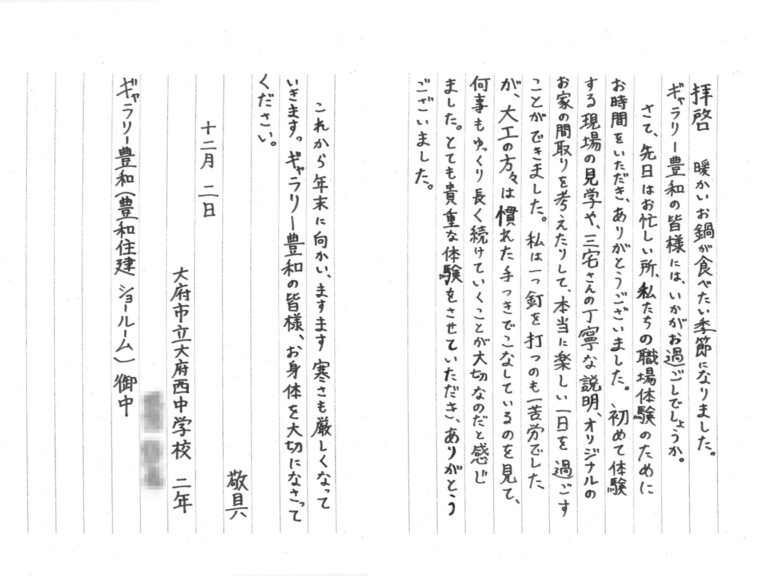 拝啓　暖かいお鍋が食べたい季節になりました。
ギャラリー豊和の皆様には、いかがお過ごしでしょうか。
さて、先日はお忙しい所、私たちの職場体験のために
お時間をいただき、ありがとうございました。初めて体験
する現場の見学や、三宅さんの丁寧な説明、オリジナルの
お家の間取りを考えたりして、本当に楽しい一日を過ごす
ことができました。私は一つ釘を打つのも一苦労でした
が、大工の方々は慣れた手つきでこなしているのを見て、
何事もゆっくり長く続けていくことが大切なのだと感じ
ました。とても貴重な体験をさせていただき、ありがとう
ございました。
これから年末に向かい、ますます寒さも厳しくなって
いきます。ギャラリー豊和の皆様、お身体を大切になさって
ください。
敬具
十二月　二日
大府市立大府西中学校　二年
ギャラリー豊和（豊和住建　ショールーム）御中